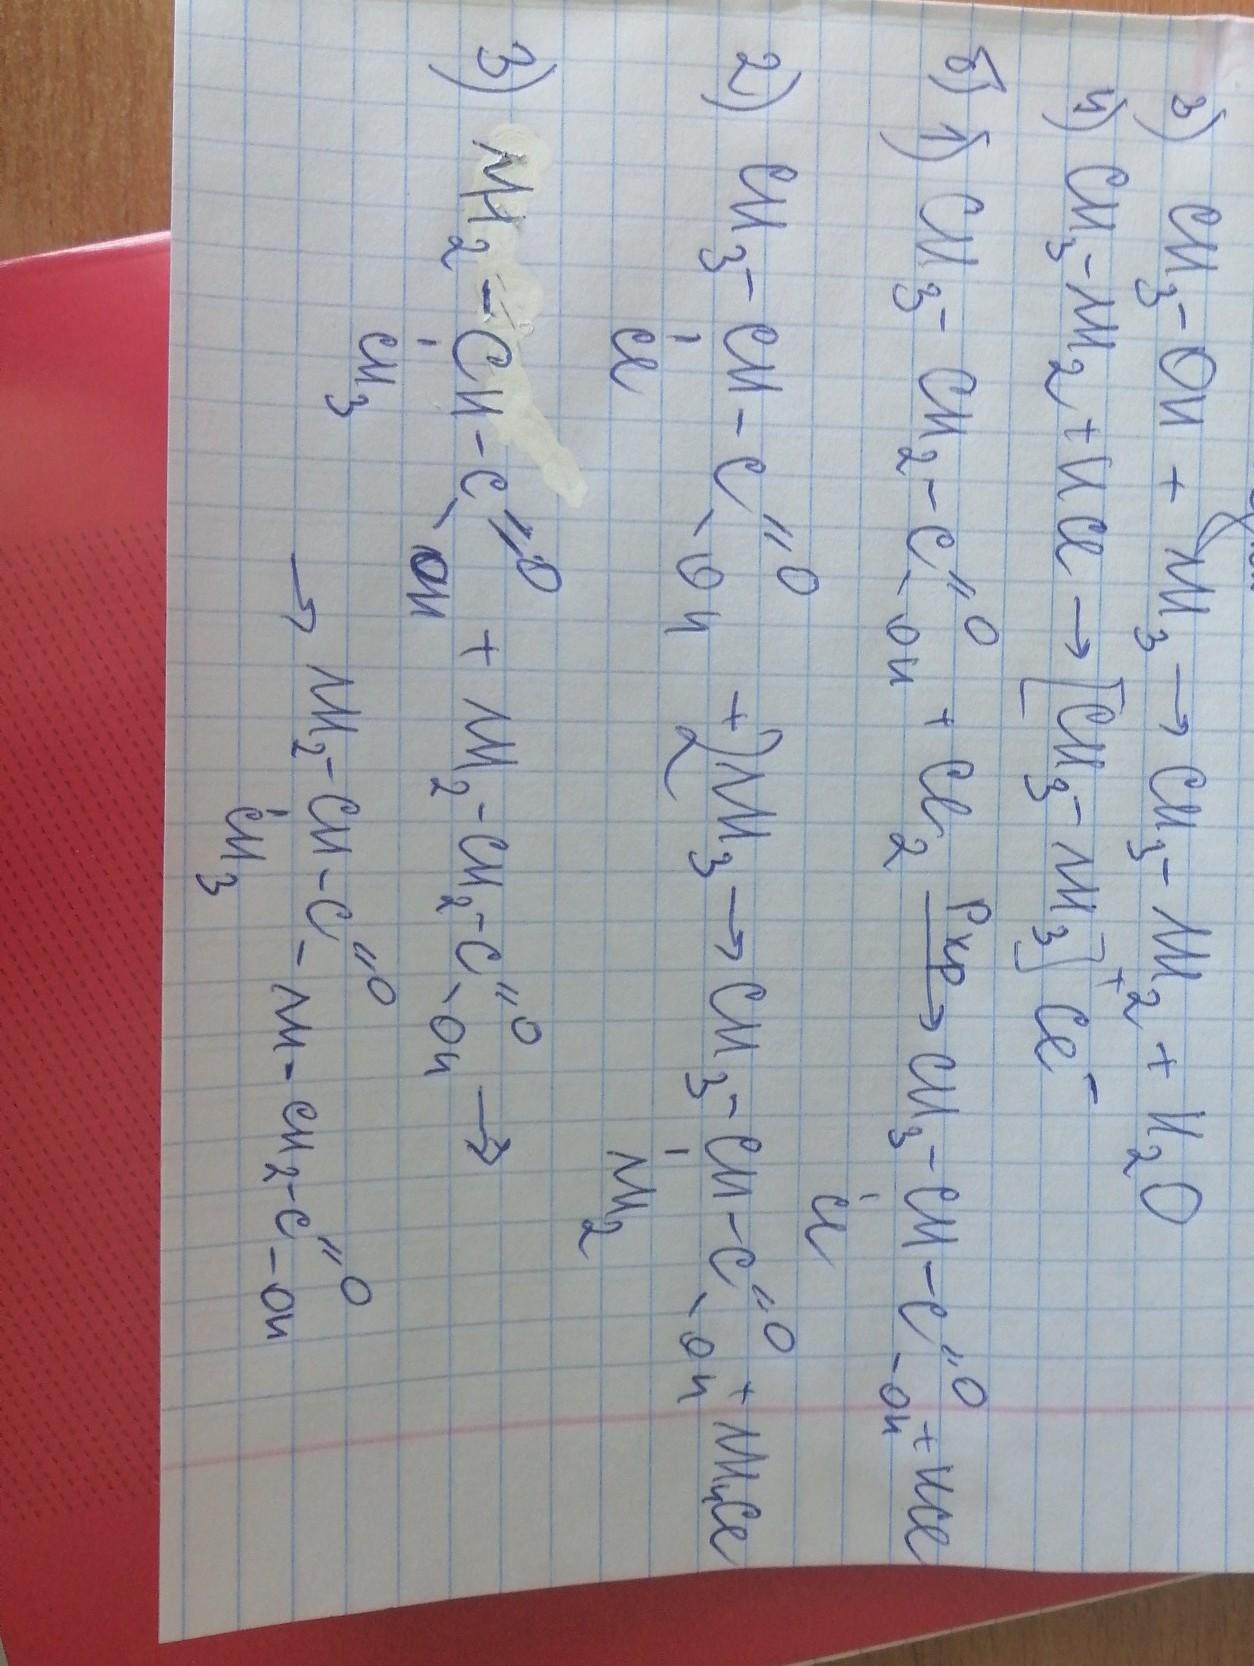 3) CH3-OH + NH3 → CH3-NH2 + H2O
4) CH3-NH2 + HCl → [CH3-NH3]+ Cl-
б) 1) CH3-CH2-C(=O)-OH + Cl2 →(Pкр) CH3-CH(Cl)-C(=O)-OH + HCl
2) CH3-CH(Cl)-C(=O)-OH + 2NH3 → CH3-CH(NH2)-C(=O)-OH + NH4Cl
3) NH2-CH(CH3)-C(=O)-OH + NH2-CH2-C(=O)-OH →
→ NH2-CH(CH3)-C(=O)-NH-CH2-C(=O)-OH